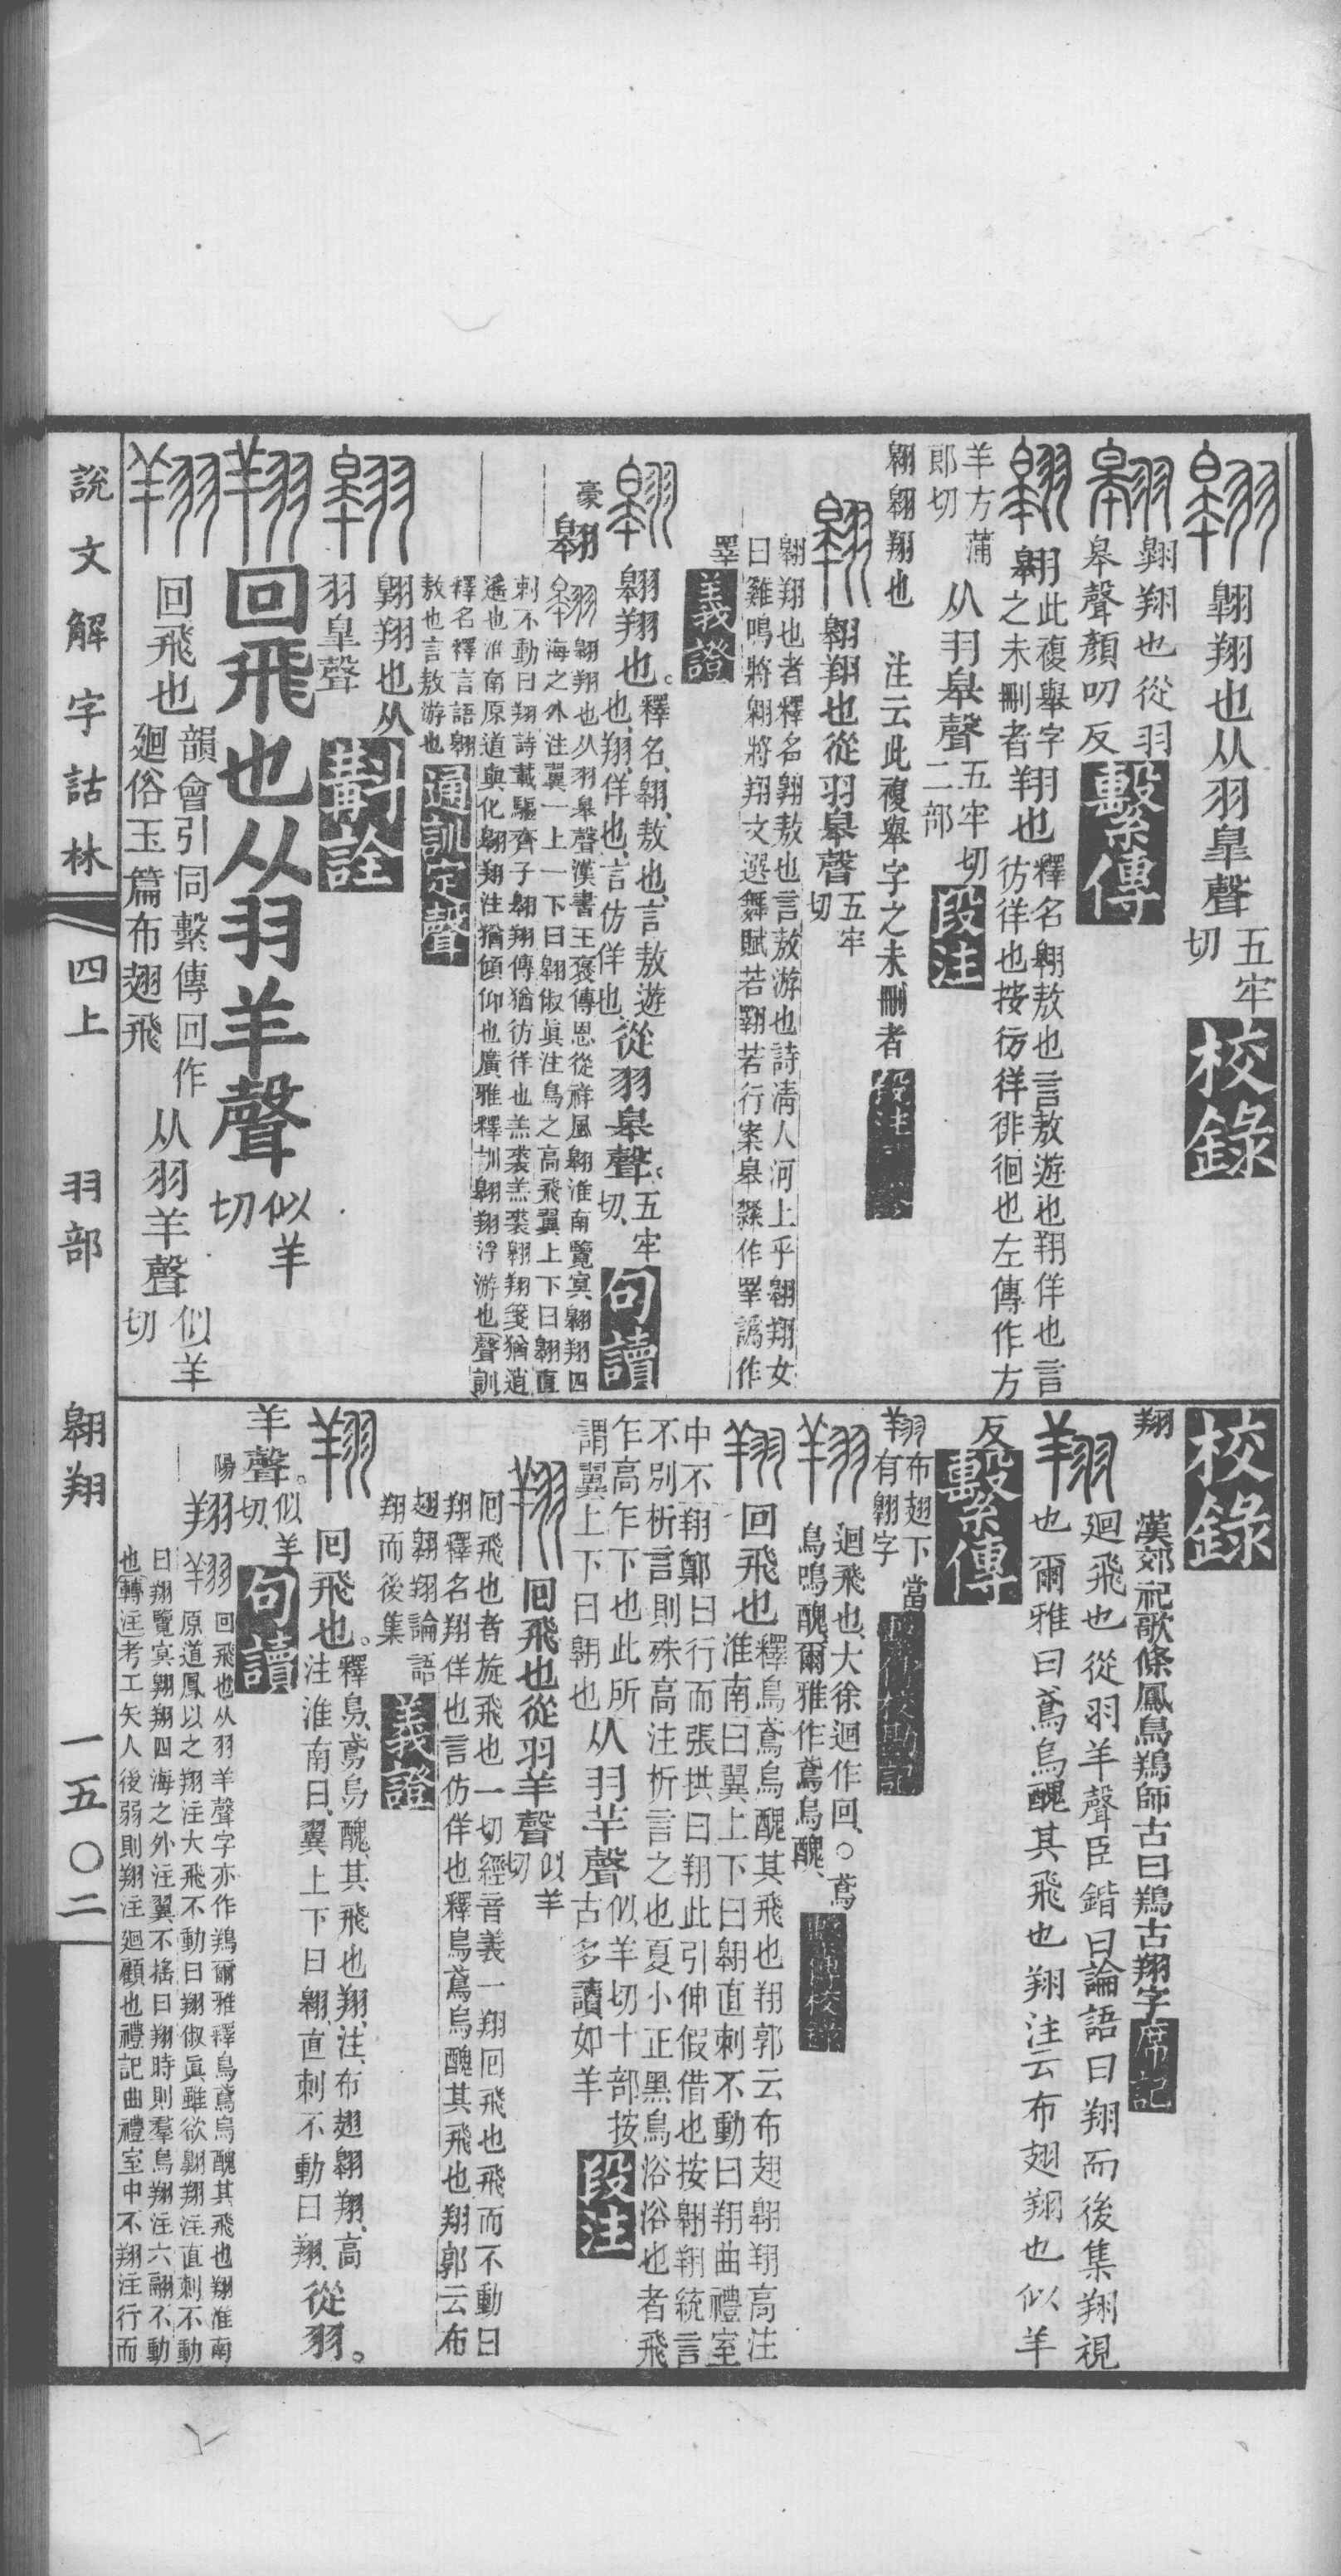 翱翔也从羽皐聲五牢切
校錄
翱翔也從羽
皋聲顏叨反
繫傳
翱此複舉字
之未刪者翔也釋名翱敖也言敖遊也翔佯也言
彷徉也按彷徉徘徊也左傳作方
羊方蒲
郎切从羽皋聲五牢切
二部
段注
翱翱翔也 注云此複舉字之未刪者
翱翔也從羽皋聲五牢
切
翱翔也者釋名翱敖也言敖游也詩淸人河上乎翱翔女
曰雞鳴將翱將翔文選舞賦若翱若行案皋繇作睪譌作
睪
義證
翱翔也。釋名、翱、敖也、言敖遊
也、翔、佯也、言仿佯也、從羽皋聲、五牢
切、
句讀
豪
翱
翱翔也从羽皋聲漢書王襃傳恩從祥風翱淮南覽冥翱翔四
海之外注翼一上一下曰翱俶眞注鳥之高飛翼上下曰翱直
刺不動曰翔詩載驅齊子翱翔傳猶彷徉也羔裘羔裘翱翔箋猶逍
遙也淮南原道與化翱翔注猶頫仰也廣雅釋訓翱翔浮游也聲訓
釋名釋言語翱
敖也言敖游也
通訓定聲
翱翔也从
羽皐聲
斠詮
翔
回飛也从羽羊聲似羊
切
回飛也韻會引同繫傳回作
廻俗玉篇布翅飛从羽羊聲似羊
切
說文解字詁林
四上
羽部
翱翔
一五〇二
校錄
翔
漢郊祀歌條鳳鳥鴹師古曰鴹古翔字
席記
廻飛也從羽羊聲臣鍇曰論語曰翔而後集翔視
也爾雅曰鳶烏醜其飛也翔注云布翅翔也似羊
反
繫傳
翔布翅下當
有翱字
迴飛也、大徐迴作回、○鳶
烏鳴醜、爾雅作鳶烏醜、
回飛也釋鳥鳶烏醜其飛也翔郭云布翅翱翔高注
淮南曰翼上下曰翱直刺不動曰翔曲禮室
中不翔鄭曰行而張拱曰翔此引伸假借也按翱翔統言
不別析言則殊高注析言之也夏小正黑鳥浴浴也者飛
乍高乍下也此所
謂翼上下曰翱也从羽羊聲似羊切十部按
古多讀如羊
段注
回飛也從羽羊聲似羊
切
回飛也者旋飛也一切經音義一翔回飛也飛而不動曰
翔釋名翔佯也言仿佯也釋鳥鳶烏醜其飛也翔郭云布
翅翱翔論語
翔而後集
義證
回飛也。釋鳥、鳶烏醜、其飛也翔、注、布翅翱翔、高
注淮南曰、翼上下曰翱、直刺不動曰翔、從羽。
羊聲。似羊
切、
句讀
陽
翔
回飛也从羽羊聲字亦作鴹爾雅釋鳥鳶烏醜其飛也翔淮南
原道鳳以之翔注大飛不動曰翔俶眞雖欲翱翔注直刺不動
曰翔覽冥翱翔四海之外注翼不搖曰翔時則羣鳥翔注六翮不動
也轉注考工矢人後弱則翔注廻顧也禮記曲禮室中不翔注行而